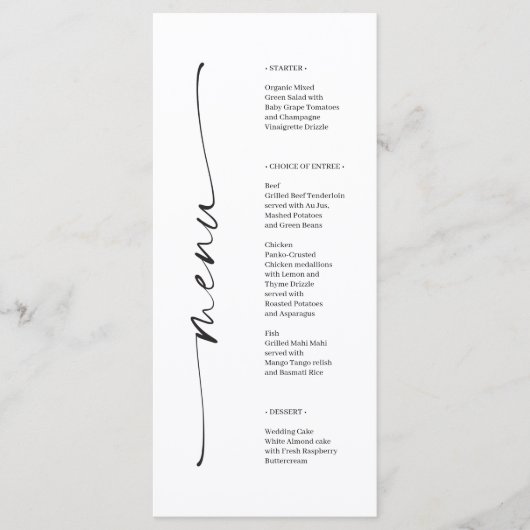 menu
• STARTER •
Organic Mixed
Green Salad with
Baby Grape Tomatoes
and Champagne
Vinaigrette Drizzle
• CHOICE OF ENTREE •
Beef
Grilled Beef Tenderloin
served with Au Jus,
Mashed Potatoes
and Green Beans
Chicken
Panko-Crusted
Chicken medallions
with Lemon and
Thyme Drizzle
served with
Roasted Potatoes
and Asparagus
Fish
Grilled Mahi Mahi
served with
Mango Tango relish
and Basmati Rice
• DESSERT •
Wedding Cake
White Almond cake
with Fresh Raspberry
Buttercream